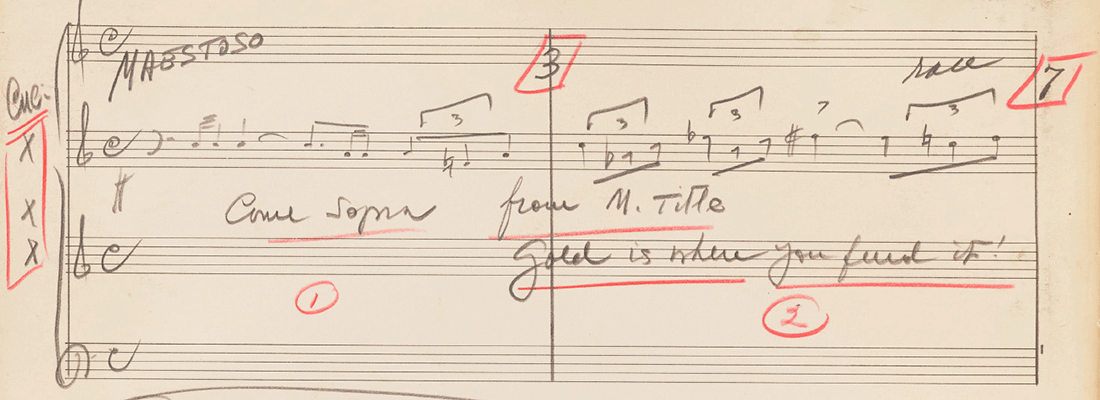 MAESTOSO
3
7
Cue:
X
3
3
3
7
3
ff
X
Come Sopra from M. Title
X
Gold is where you find it!
1
2